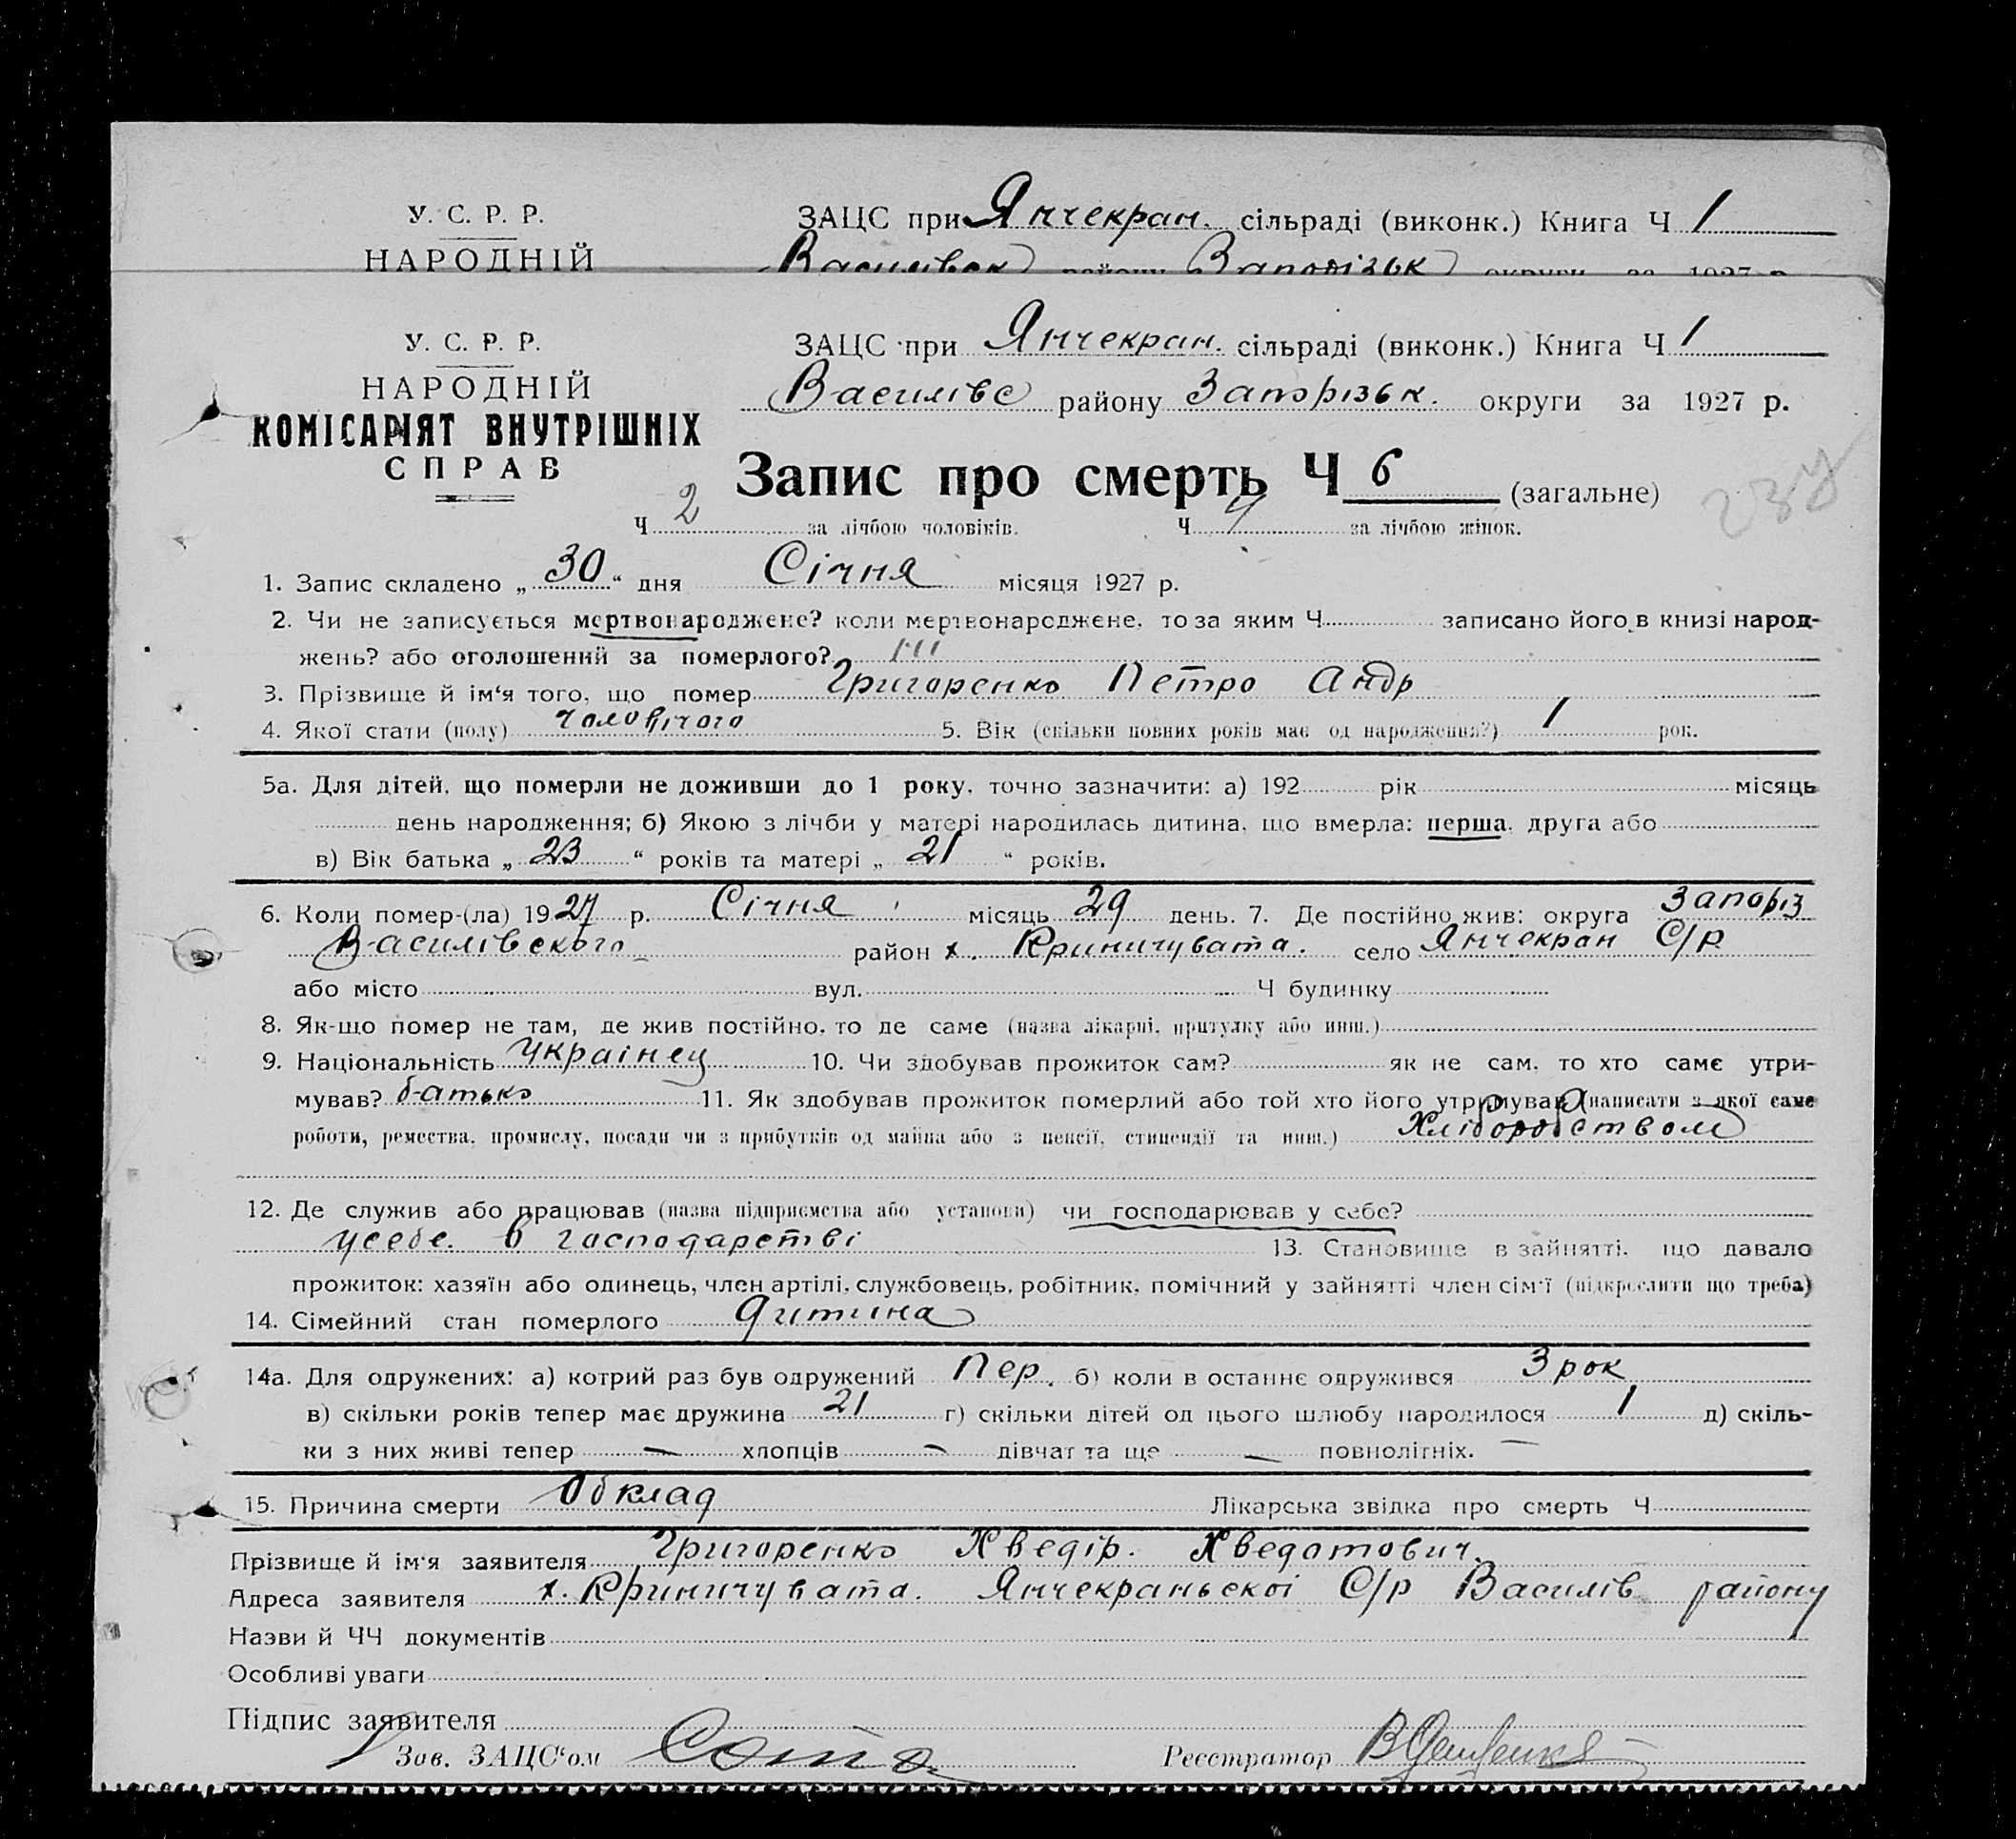 У. С. Р. Р.
НАРОДНІЙ
ЗАЦС при Янчекран. сільраді (виконк.) Книга Ч 1
Василівськ району Запорізьк округи за 1927 р.
У. С. Р. Р.
НАРОДНІЙ
КОМІСАРІЯТ ВНУТРІШНІХ
СПРАВ
ЗАЦС при Янчекран. сільраді (виконк.) Книга Ч 1
Василівс району Запорізьк. округи за 1927 р.
Запис про смерть Ч 6 (загальне)
Ч 2 за лічбою чоловіків. Ч 4 за лічбою жінок.
1. Запис складено „30“ дня Січня місяця 1927 р.
2. Чи не записується мертвонароджене? коли мертвонароджене, то за яким Ч записано його в книзі народ-
жень? або оголошений за померлого?
3. Прізвище й ім‘я того, що помер Григоренко Петро Андр
4. Якої стати (полу) чоловічого 5. Вік (скільки повних років має од народження?) 1 рок.
5а. Для дітей, що померли не доживши до 1 року, точно зазначити: а) 192 рік місяць
день народження; б) Якою з лічби у матері народилась дитина, що вмерла: перша, друга або
в) Вік батька „23“ років та матері „21“ років.
6. Коли помер-(ла) 1927 р. Січня місяць 29 день. 7. Де постійно жив: округа Запоріз
Василівского район х. Криничувата. село Янчекран С/р
або місто вул. Ч будинку
8. Як-що помер не там, де жив постійно, то де саме (назва лікарні, притулку або инш.)
9. Національність Українец 10. Чи здобував прожиток сам? як не сам, то хто саме утри-
мував? батько 11. Як здобував прожиток померлий або той хто його утримував (написати з якої саме
роботи, ремества, промислу, посади чи з прибутків од майна або з пенсії, стипендії та инш.) Хліборобством
12. Де служив або працював (назва підприємства або установи) чи господарював у себе?
усебе. в господарстві 13. Становище в зайнятті, що давало
прожиток: хазяїн або одинець, член артілі, службовець, робітник, помічний у зайнятті член сім‘ї (підкреслити що треба)
14. Сімейний стан померлого дитина
14а. Для одружених: а) котрий раз був одружений Пер. б) коли в останнє одружився 3 рок
в) скільки років тепер має дружина 21 г) скільки дітей од цього шлюбу народилося 1 д) скіль-
ки з них живі тепер — хлопців — дівчат та ще — повнолітніх. —
15. Причина смерти Обклад Лікарська звідка про смерть Ч
Прізвище й ім‘я заявителя Григоренко Хведір. Хведотович.
Адреса заявителя х. Криничувата. Янчекраньскоі С/р Василів району
Назви й ЧЧ документів
Особливі уваги
Підпис заявителя
Зав. ЗАЦС‘ом Реєстратор